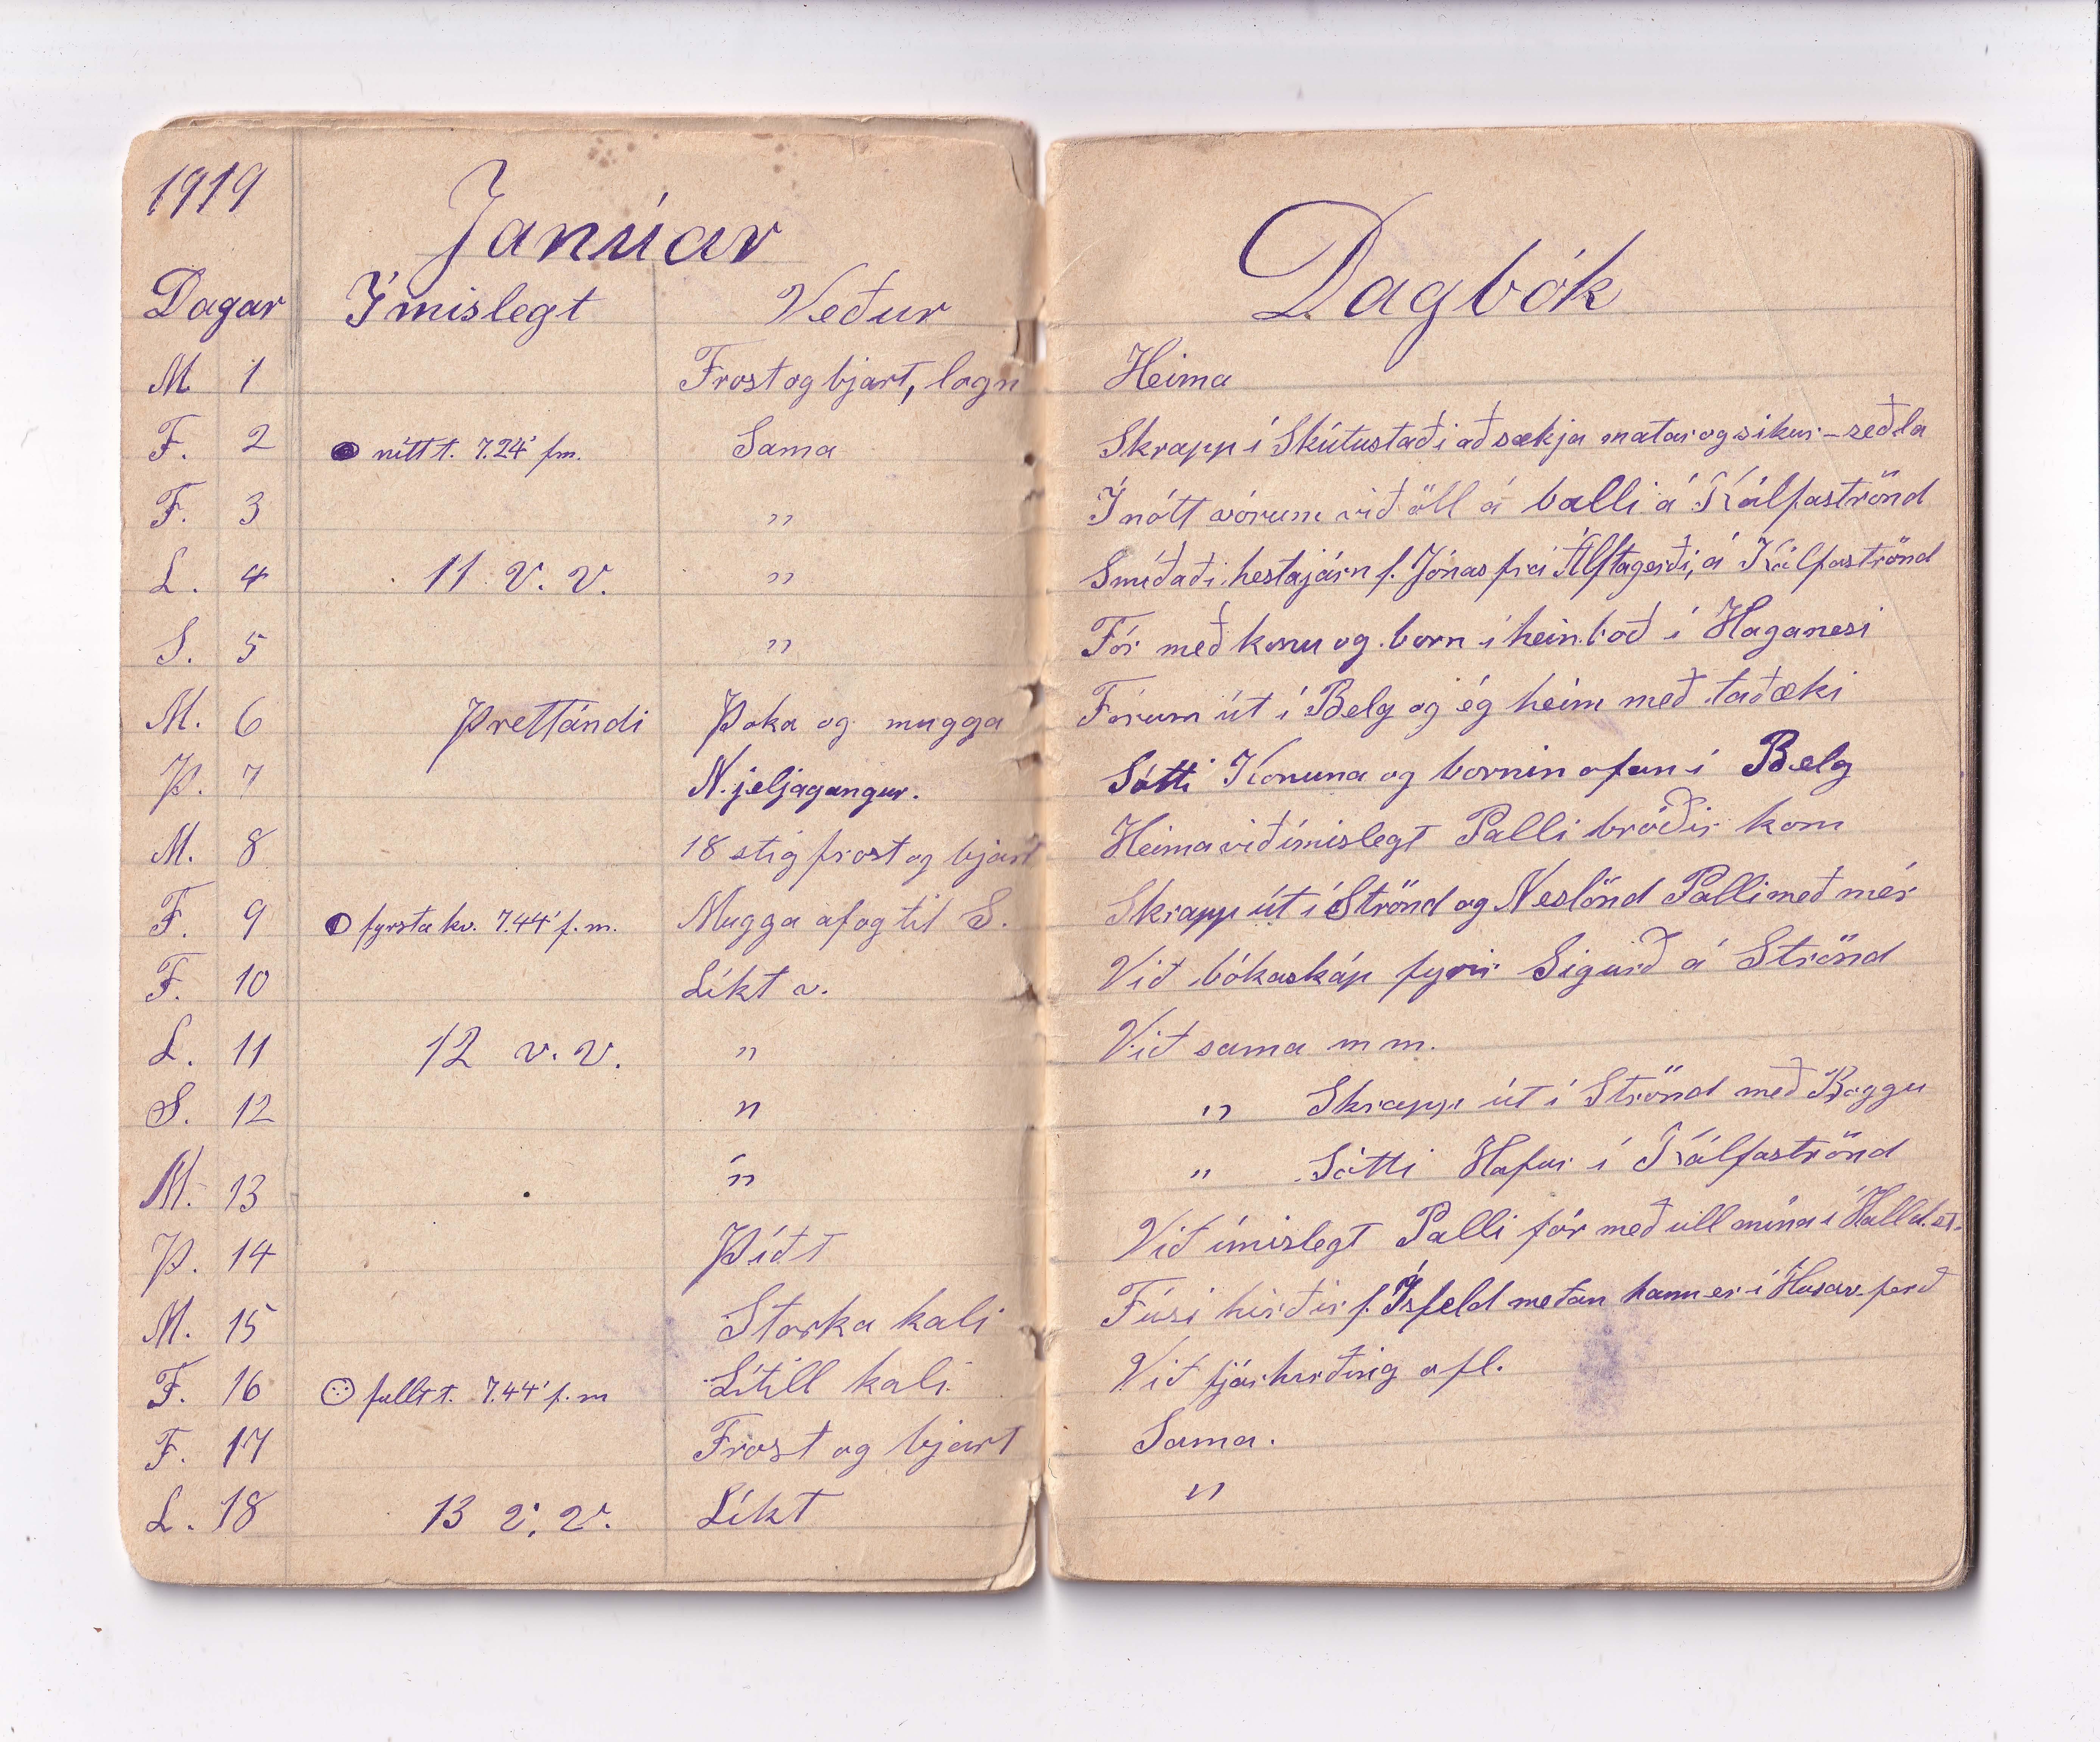 1919
Janúar
Dagar Ímislegt Veður
M 1 Frost og bjart, logn
F. 2 nítt t. 7.24' fm. Sama
F. 3 "
L. 4 11 v. v. "
S. 5 "
M. 6 Þrettándi Þoka og mugga
Þ. 7 N. jeljagangur.
M. 8 18 stig frost og bjart
F. 9 fyrsta kv. 7.44' f.m. Mugga af og til S.
F. 10 Líkt v.
L. 11 12 v. v. "
S. 12 "
M. 13 "
Þ. 14 Þíðt
M. 15 Storka kali
F. 16 fullt t. 7.44' f.m Lítill kali.
F. 17 Frost og bjart
L. 18 13 v. v. Líkt
Dagbók
Heima
Skrapp í Skútustaði að sækja matar og sikur-seðla
Í nótt vórum við öll á balli á Kálfaströnd
Smíðaði hestajárn f. Jónas frá Álftagerði, á Kálfaströnd
Fór með konu og born í heinboð í Haganesi
Fórum út í Belg og ég heim með taðæki
Sótti Konuna og bornin ofan í Belg
Heima við ímislegt Palli bróðir kom
Skrapp út í Strönd og Neslönd Palli með mér
Við bókaskáp fyrir Sigurð á Strönd
Við sama m m.
" Skrapp út í Strönd með Boggu
" Sótti Hafur í Kálfaströnd
Við ímislegt Palli fór með ull mína í Halld.st.
Fúsi hirðir f. Ísfeld meðan hann er í Húsav. ferð
Við fjárhirðing o fl.
Sama.
"